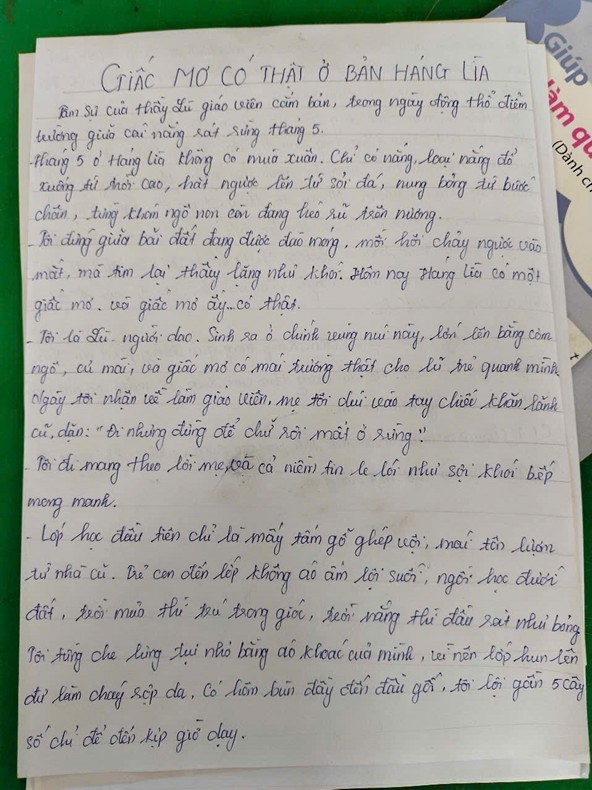 GIẤC MƠ CÓ THẬT Ở BẢN HÁNG LÌA
Tâm sự của thầy Lù giáo viên cắm bản, trong ngày động thổ điểm
trường giữa cái nắng rát rừng tháng 5.
- Tháng 5 ở Háng Lìa không có mùa xuân. Chỉ có nắng, loại nắng đổ
xuống từ trời cao, hất ngược lên từ sỏi đá, nung bỏng từ bước
chân, từng khóm ngô non còn đang héo rũ trên nương.
- Tôi đứng giữa bãi đất đang được đào móng, mồ hôi chảy ngược vào
mắt, mà tim lại thấy lâng như khói. Hôm nay Háng Lìa có một
giấc mơ. và giấc mơ ấy.. có thật.
- Tôi là Lù - người dao. Sinh ra ở chính vùng núi này, lớn lên bằng cơm
ngô, củ mài, và giấc mơ có mái trường thật cho lũ trẻ quanh mình
Ngày tôi nhận về làm giáo viên, mẹ tôi dúi vào tay chiếc khăn lanh
cũ, dặn: "Đi nhưng đừng để chữ rơi mất ở rừng".
- Tôi đi mang theo lời mẹ, và cả niềm tin le lói như sợi khói bếp
mong manh.
- Lớp học đầu tiên chỉ là mấy tấm gỗ ghép vội, mái tôn lượm
từ nhà cũ. Trẻ con đến lớp không áo ấm lội suối, ngồi học dưới
đất, trời mưa thì trú trong góc, trời nắng thì đầu rát như bỏng
Tôi từng che lưng tụi nhỏ bằng áo khoác của mình, vì nền lớp hun lên
đủ làm cháy sộp da. Có hôm bùn đầy đến đầu gối, tôi lội gần 5 cây
số chỉ để đến kịp giờ dạy.
Giúp
làm qu
(Dành ch